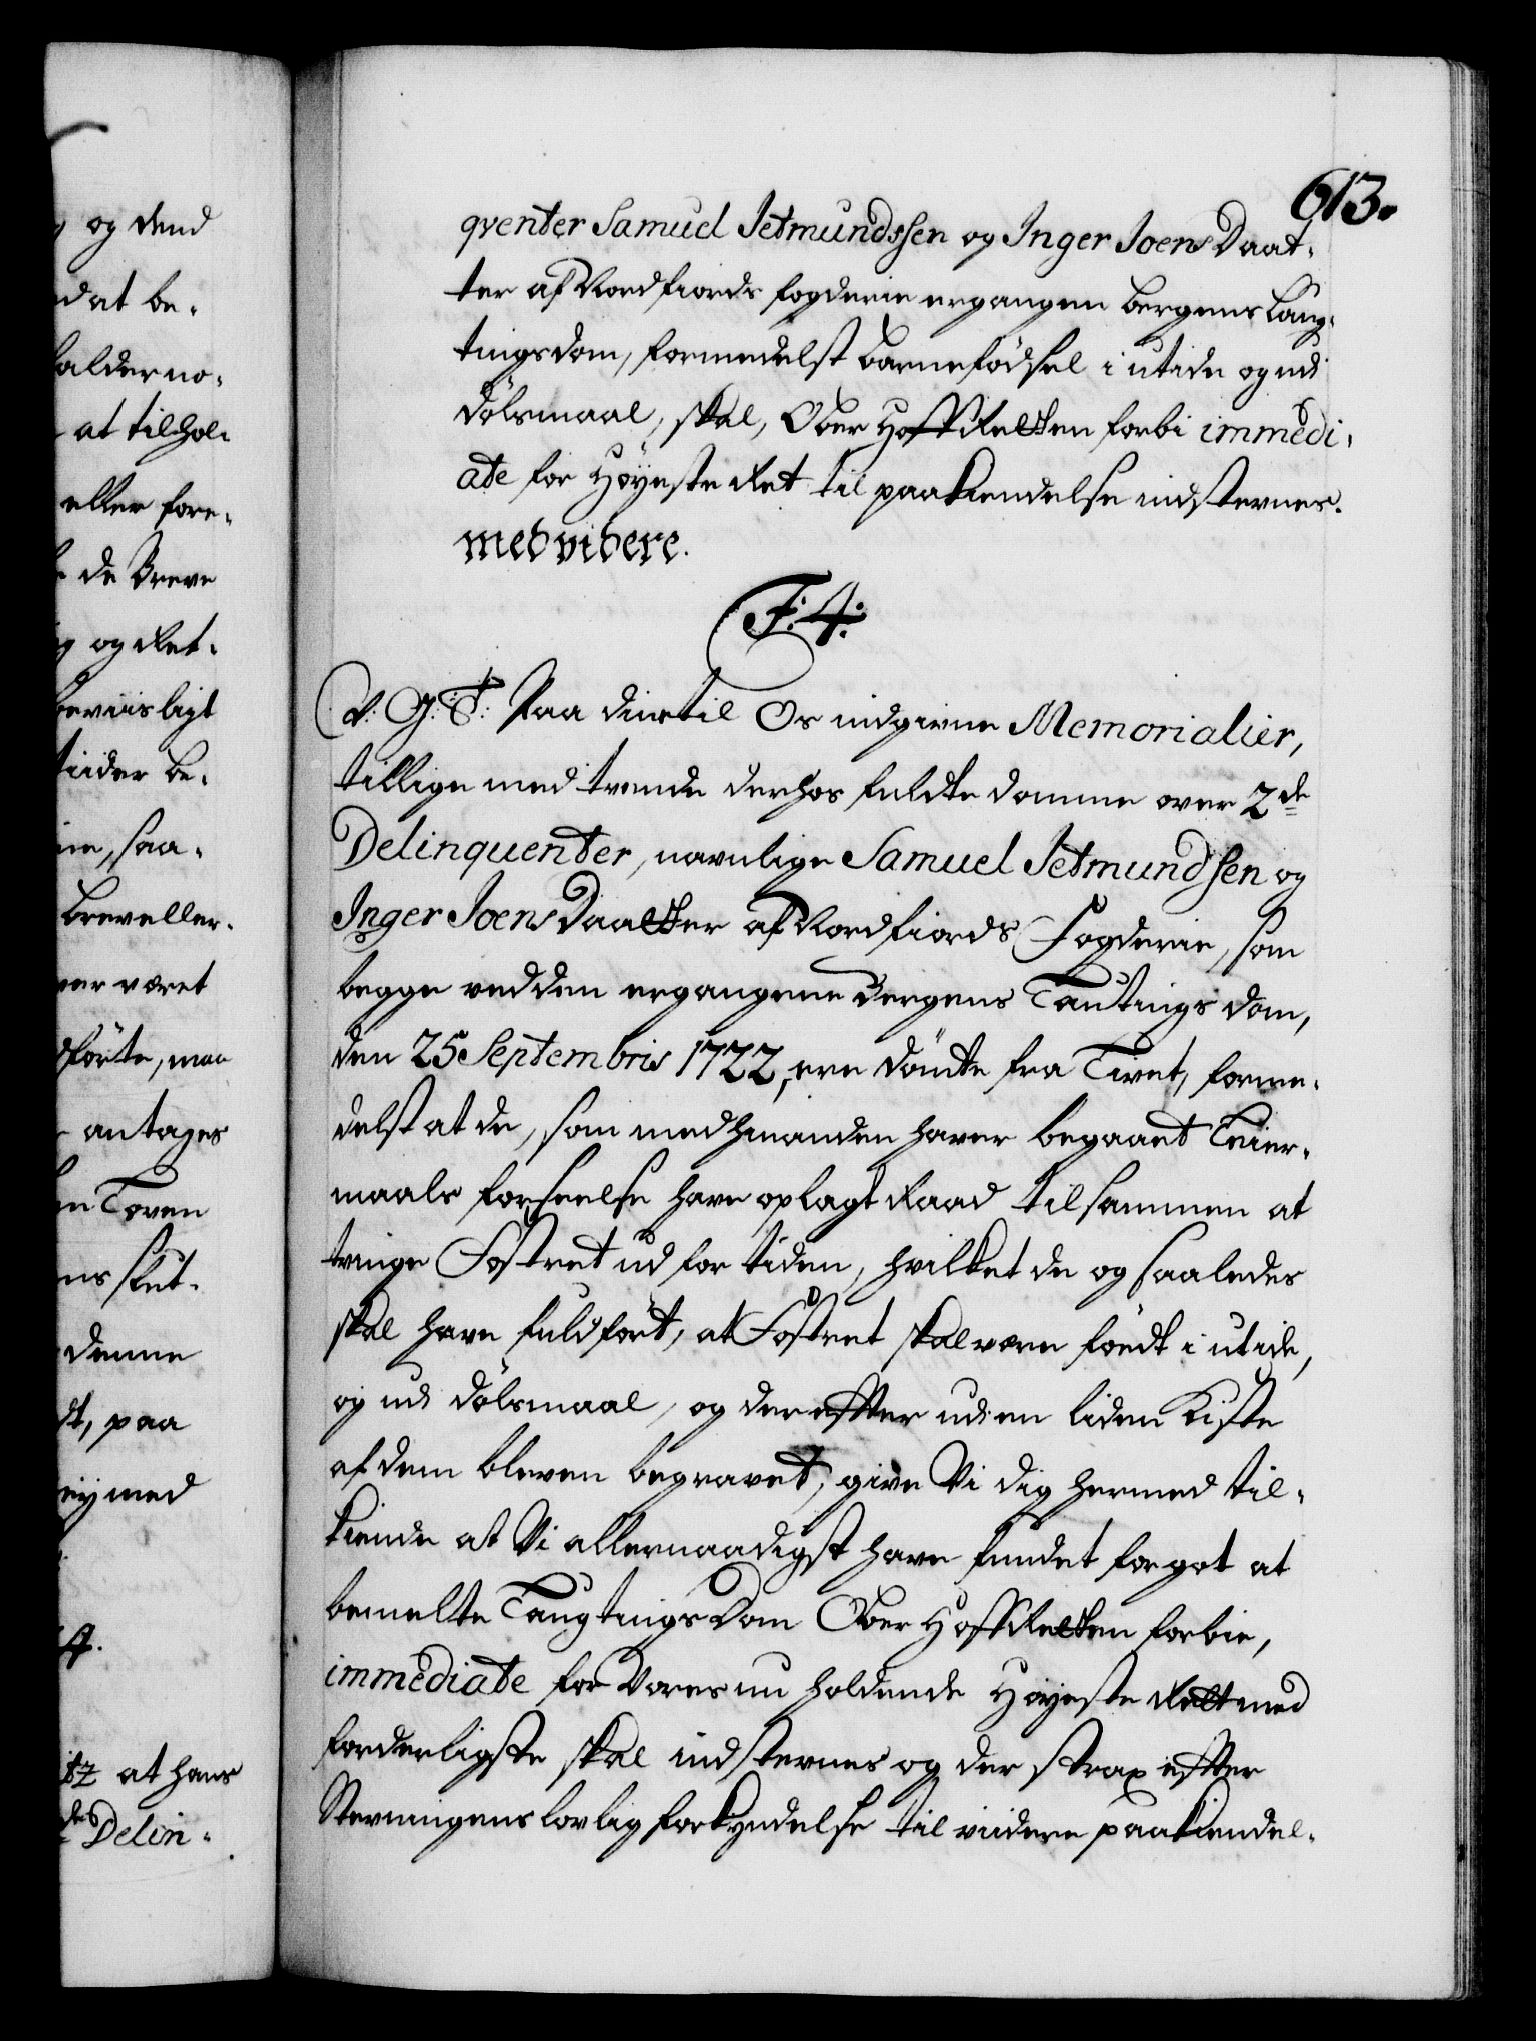 613.
qventer Samuel Jetmundssen og Inger JoensDaat-
ter af Nordfiords fogderie ergangen Bergens Laug-
tingsdom, formedelst barnefödsel i utide og udi
dölsmaal, skal, Ober HoffRetten forbi immedi-
ate for Höyeste Ret til paakiendelse indstevnes.
med videre.
F: 4:
V: G: T: Paa din til Os indgivne Memorialier,
tillige med tvende derhos fuldte Domme over 2de
Delinquenter, navnlige Samuel Jetmundssen og
Inger JoensDaatter af Nordfiords Fogderie, som
begge ved den ergangene Bergens Lautings dom,
den 25 Septembris 1722, ere dömte fra Livet, forme-
delst at de, som med hinanden haver begaaet Leier-
maals forseelse have oplagt Raad tilsammen at
tvinge Fostret ud for tiden, hvilket de og saaledes
skal have fuldfört, at Fostret skal være föedt i utide,
og udi dölsmaal, og derefter udi en liden Kiste
af dem bleven begravet, give Vi dig hermed til-
kiende at Vi allernaadigst have fundet for got at
bemelte LaugtingsDom Ober HoffRetten forbie,
immediate for Vores nu holdende Höyeste Rett med
forderligste skal indstevnes og der strax efter
Stevningens lovlig forkyndelse til viidere paakiendel-
og dend
dat be-
holder no-
at tilhol-
eller fore-
de Breve
og Ret-
beviisligt
tiider be-
saa-
brev eller
var været
förte, maa
antages
Loven
denne
paa
ey med
at hans
des Delin-